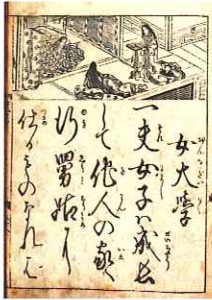 女大学
一夫女子ハ成長
して他人の家へ
行舅姑に
仕るものなれば